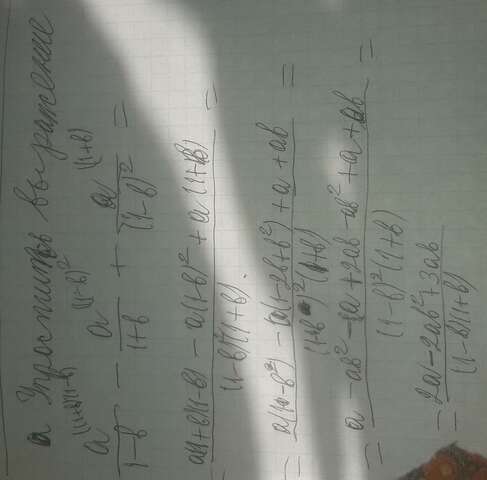 а Упростить выражение
(1+b)(1-b) (1-b)² (1+b)
a/(1-b) - a/(1+b) + a/(1-b)² =
a(1+b)(1-b) - a(1-b)² + a(1+b) / (1-b)²(1+b) =
= a(1-b²) - a(1-2b+b²) + a + ab / (1-b)²(1+b) =
= a - ab² - a + 2ab - ab² + a + ab / (1-b)²(1+b) =
= 2a - 2ab² + 3ab / (1-b)(1+b)